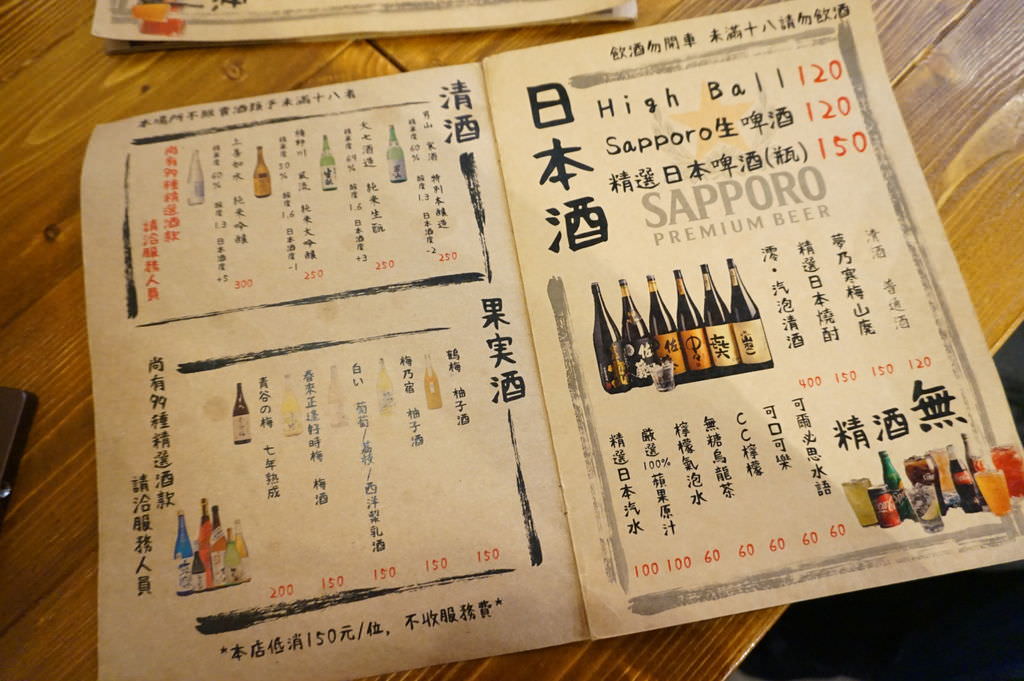 飲酒勿開車 未滿十八請勿飲酒
日本酒
High Ball 120
Sapporo生啤酒 120
精選日本啤酒(瓶) 150
SAPPORO
PREMIUM BEER
清酒 普通酒 120
夢乃寒梅山廃 150
精選日本燒酎 150
澪·汽泡清酒 400
無酒精
可爾必思水語 60
可口可樂 60
CC檸檬 60
無糖烏龍茶 60
檸檬氣泡水 60
嚴選100%蘋果原汁 100
精選日本汽水 100
本場所不販賣酒類予未滿十八者
清酒
男山 寒酒 特別本釀造
精米度60% 酸度1.3 日本酒度-2
250
大七酒造 純米生酛
精米度69% 酸度1.6 日本酒度+3
250
楯野川 風流 純米大吟釀
精米度50% 酸度1.6 日本酒度-1
250
上善如水 純米吟釀
精米度60% 酸度1.3 日本酒度+5
300
尚有99種精選酒款
請洽服務人員
果実酒
鶴梅 柚子酒 150
梅乃宿 柚子酒 150
白い 葡萄/荔枝/西洋梨乳酒 150
春來正逢好時梅 梅酒 150
青谷の梅 七年熟成 200
尚有99種精選酒款
請洽服務人員
*本店低消150元/位, 不收服務費*